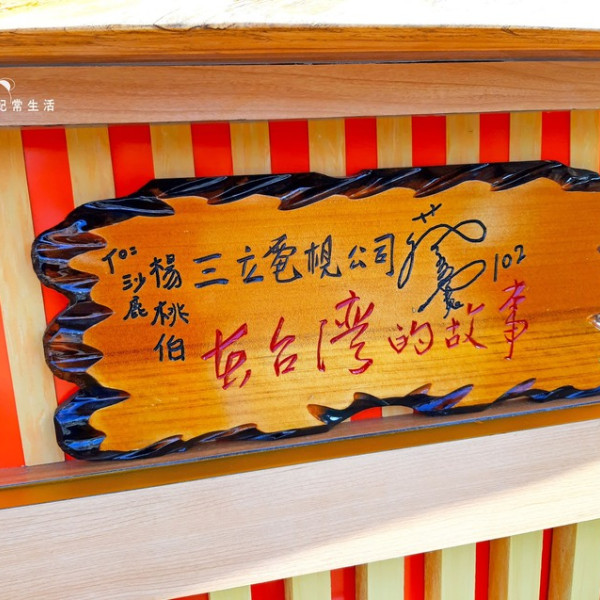 記常生活
TO:
沙鹿
楊桃伯
三立電視公司
102
在台灣的故事